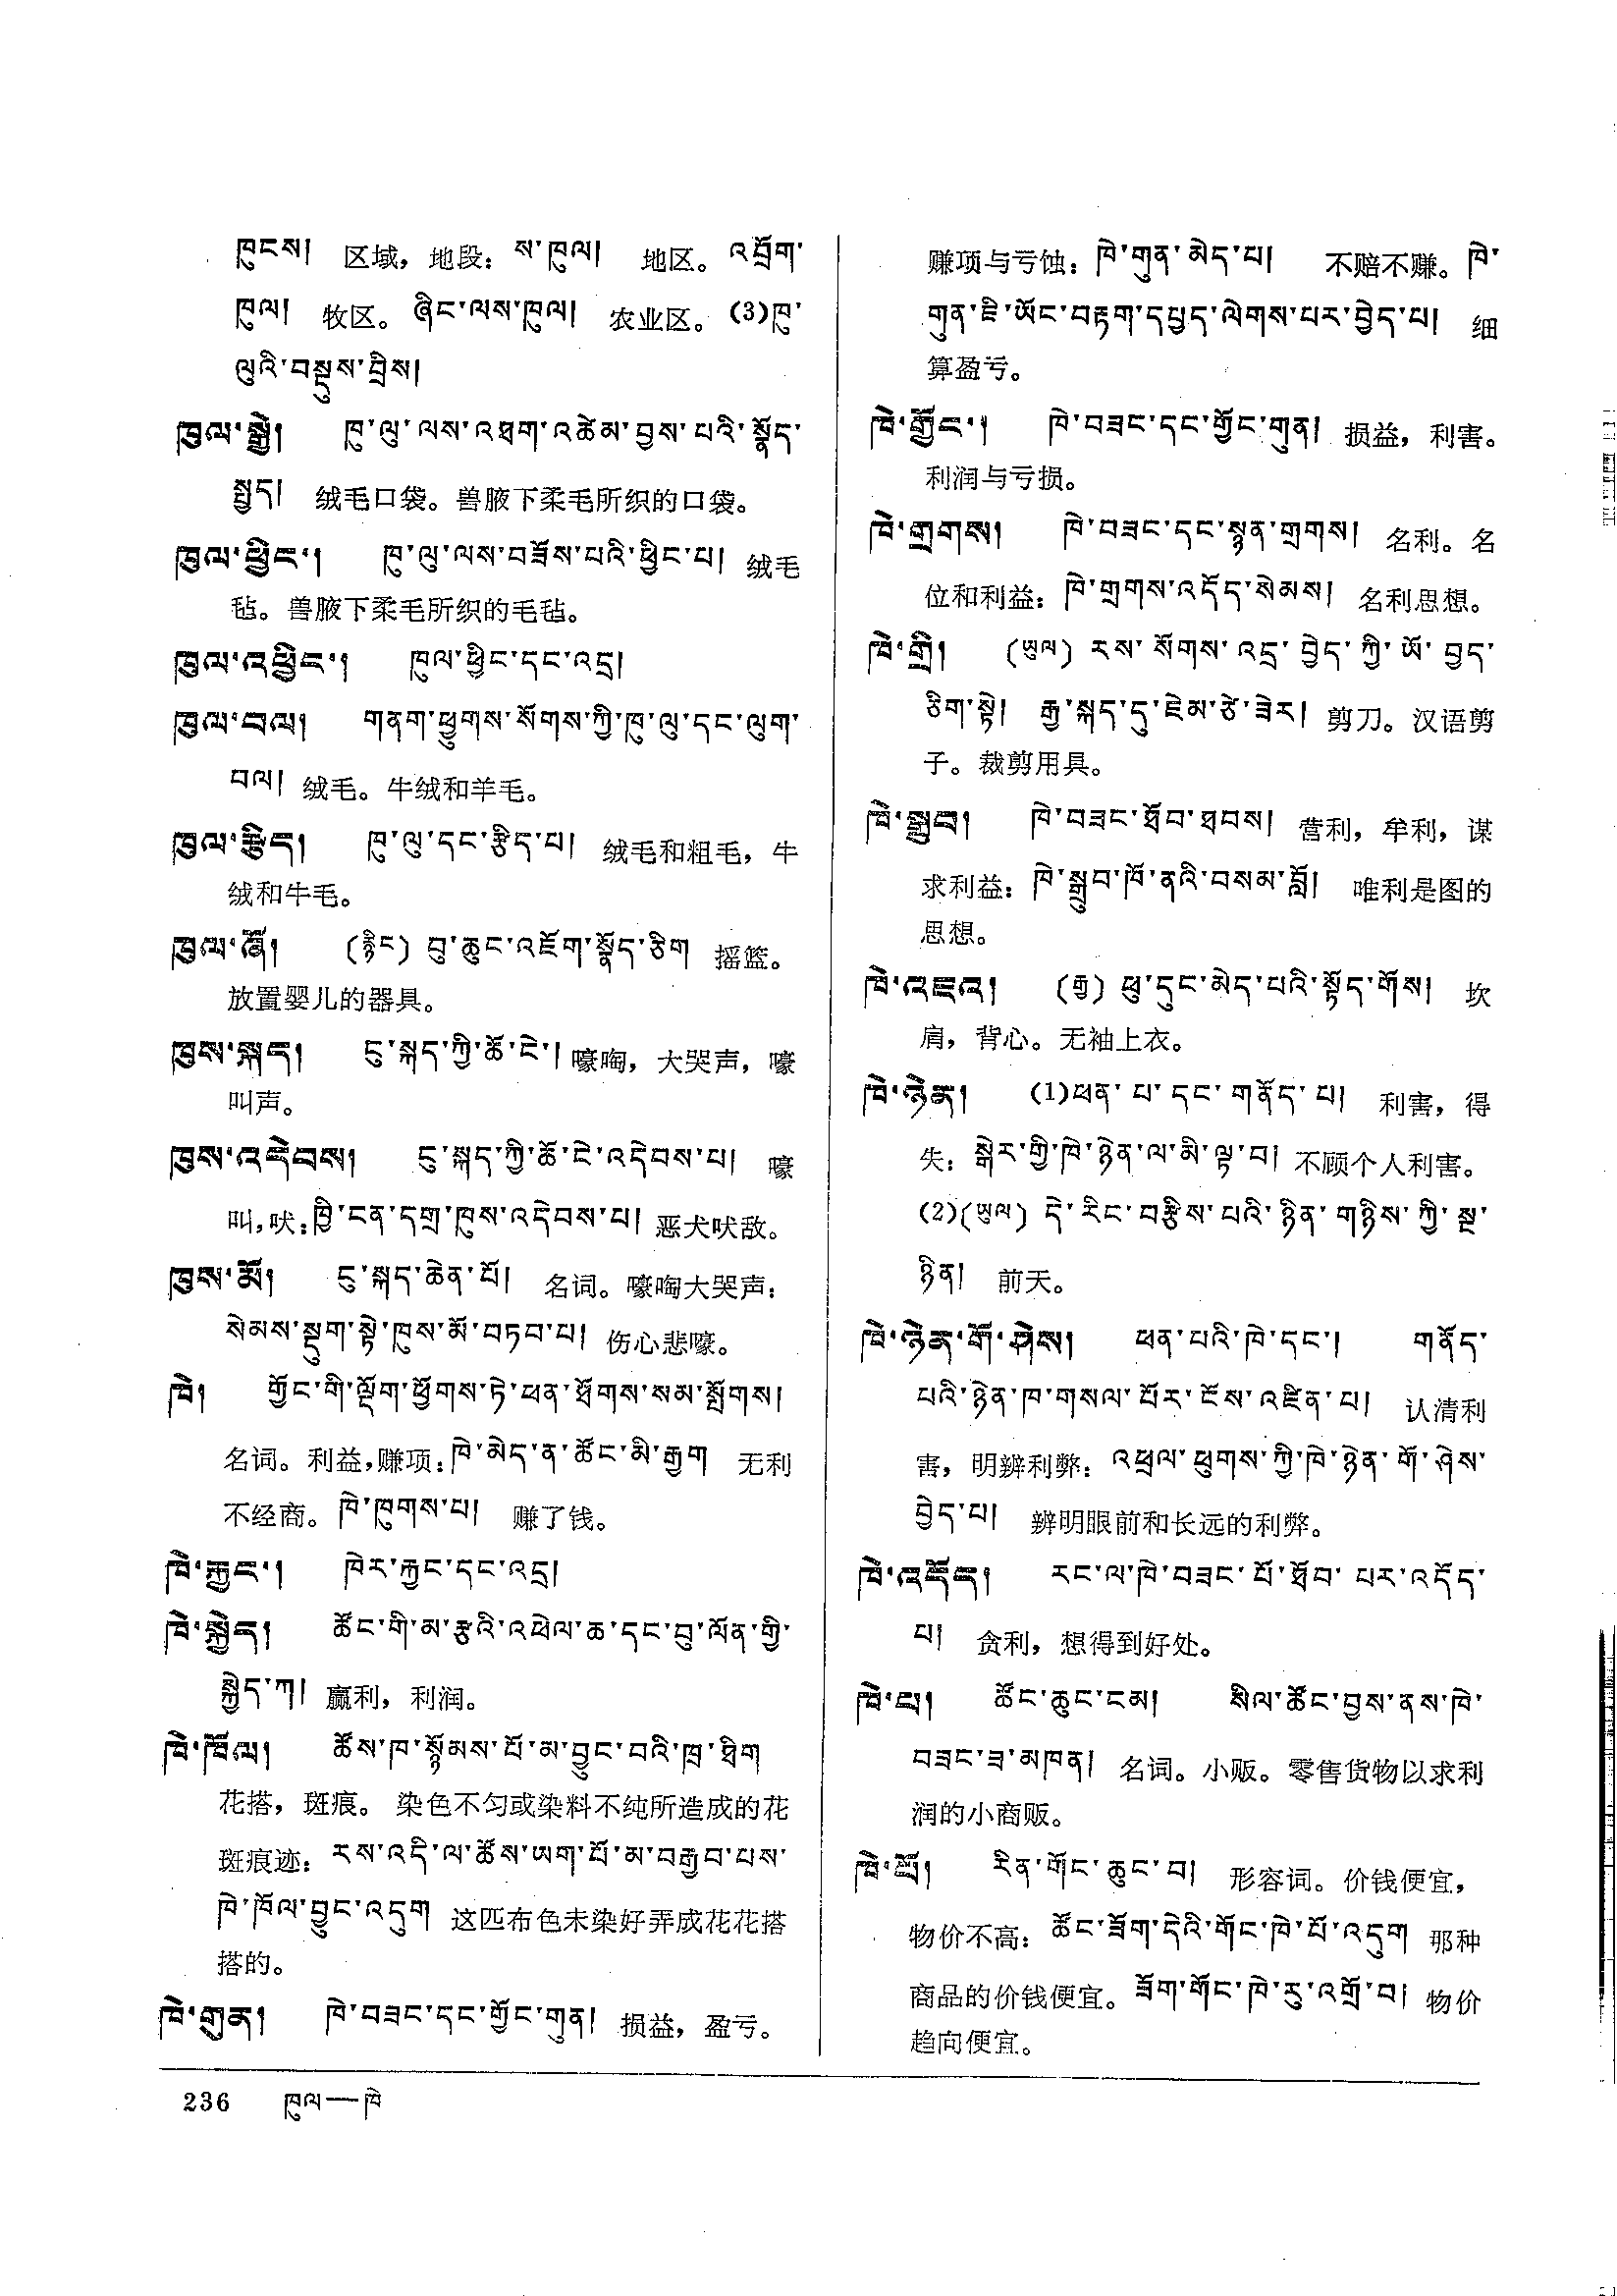 ཁུངས། 区域，地段：ས་ཁུལ། 地区。འབྲོག་
ཁུལ། 牧区。ཞིང་ལས་ཁུལ། 农业区。(3)ཁུ་
ལུའི་བསྡུས་བྲིས།
ཁུལ་སྒྱེ། ཁུ་ལུ་ལས་འཐག་འཚེམ་བྱས་པའི་སྣོད་
སྤྱད། 绒毛口袋。兽腋下柔毛所织的口袋。
ཁུལ་ཕྱིང་། ཁུ་ལུ་ལས་བཟོས་པའི་ཕྱིང་པ། 绒毛
毡。兽腋下柔毛所织的毛毡。
ཁུལ་འཕྱིང་། ཁུལ་ཕྱིང་དང་འདྲ།
ཁུལ་བལ། གནག་ཕྱུགས་སོགས་ཀྱི་ཁུ་ལུ་དང་ལུག་
བལ། 绒毛。牛绒和羊毛。
ཁུལ་རྩིད། ཁུ་ལུ་དང་རྩིད་པ། 绒毛和粗毛，牛
绒和牛毛。
ཁུལ་ཞོ། (རྙིང) བུ་ཆུང་འཇོག་སྣོད་ཅིག 摇篮。
放置婴儿的器具。
ཁུས་སྐད། ངུ་སྐད་ཀྱི་ཚོ་ངེ་། 嚎啕，大哭声，嚎
叫声。
ཁུས་འདེབས། ངུ་སྐད་ཀྱི་ཚོ་ངེ་འདེབས་པ། 嚎
叫,吠：ཁྱི་ངན་དགྲ་ཁུས་འདེབས་པ། 恶犬吠敌。
ཁུས་མོ། ངུ་སྐད་ཆེན་པོ། 名词。嚎啕大哭声：
སེམས་སྡུག་སྟེ་ཁུས་མོ་བཏབ་པ། 伤心悲嚎。
ཁེ། གྱོང་གི་ལྡོག་ཕྱོགས་ཏེ་ཕན་ཐོགས་སམ་སྤོགས།
名词。利益,赚项：ཁེ་མེད་ན་ཚོང་མི་རྒྱག 无利
不经商。ཁེ་ཁུགས་པ། 赚了钱。
ཁེ་རྐྱང་། ཁེར་རྐྱང་དང་འདྲ།
ཁེ་སྐྱེད། ཚོང་གི་མ་རྩའི་འཕེལ་ཆ་དང་བུ་ལོན་གྱི་
སྐྱེད་ཀ། 赢利，利润。
ཁེ་ཁོལ། ཚོས་ཁ་སྙོམས་པོ་མ་བྱུང་བའི་ཁྲ་ཐིག
花搭，斑痕。染色不匀或染料不纯所造成的花
斑痕迹：རས་འདི་ལ་ཚོས་ཡག་པོ་མ་བརྒྱབ་པས་
ཁེ་ཁོལ་བྱུང་འདུག 这匹布色未染好弄成花花搭
搭的。
ཁེ་གུན། ཁེ་བཟང་དང་གྱོང་གུན། 损益，盈亏。
赚项与亏蚀：ཁེ་གུན་མེད་པ། 不赔不赚。ཁེ་
གུན་ཇི་ཡོང་བརྟག་དཔྱད་ལེགས་པར་བྱེད་པ། 细
算盈亏。
ཁེ་གྱོང་། ཁེ་བཟང་དང་གྱོང་གུན། 损益，利害。
利润与亏损。
ཁེ་གྲགས། ཁེ་བཟང་དང་སྙན་གྲགས། 名利。名
位和利益：ཁེ་གྲགས་འདོད་སེམས། 名利思想。
ཁེ་གྲི། (ཡུལ) རས་སོགས་འདྲ་བྱེད་ཀྱི་ཡོ་བྱད་
ཅིག་སྟེ། རྒྱ་སྐད་དུ་ཇེམ་ཙེ་ཟེར། 剪刀。汉语剪
子。裁剪用具。
ཁེ་སྒྲུབ། ཁེ་བཟང་ཐོབ་ཐབས། 营利，牟利，谋
求利益：ཁེ་སྒྲུབ་ཁོ་ནའི་བསམ་བློ། 唯利是图的
思想。
ཁེ་འཇའ། (རྒྱ) ཕུ་དུང་མེད་པའི་སྟོད་གོས། 坎
肩，背心。无袖上衣。
ཁེ་ཉེན། (1)ཕན་པ་དང་གནོད་པ། 利害，得
失：སྒེར་གྱི་ཁེ་ཉེན་ལ་མི་ལྟ་བ། 不顾个人利害。
(2)(ཡུལ) དེ་རིང་བརྩིས་པའི་ཉིན་གཉིས་ཀྱི་སྔ་
ཉིན། 前天。
ཁེ་ཉེན་གོ་ཤེས། ཕན་པའི་ཁེ་དང་། གནོད་
པའི་ཉེན་ཁ་གསལ་པོར་ངོས་འཛིན་པ། 认清利
害，明辨利弊：འཕྲལ་ཕུགས་ཀྱི་ཁེ་ཉེན་གོ་ཤེས་
བྱེད་པ། 辨明眼前和长远的利弊。
ཁེ་འདོད། རང་ལ་ཁེ་བཟང་པོ་ཐོབ་པར་འདོད་
པ། 贪利，想得到好处。
ཁེ་པ། ཚོང་ཆུང་ངམ། སིལ་ཚོང་བྱས་ནས་ཁེ་
བཟང་ཟ་མཁན། 名词。小贩。零售货物以求利
润的小商贩。
ཁེ་པོ། རིན་གོང་ཆུང་བ། 形容词。价钱便宜，
物价不高：ཚོང་ཟོག་དེའི་གོང་ཁེ་པོ་འདུག 那种
商品的价钱便宜。ཟོག་གོང་ཁེ་རུ་འགྲོ་བ། 物价
趋向便宜。
236 ཁུལ—ཁེ